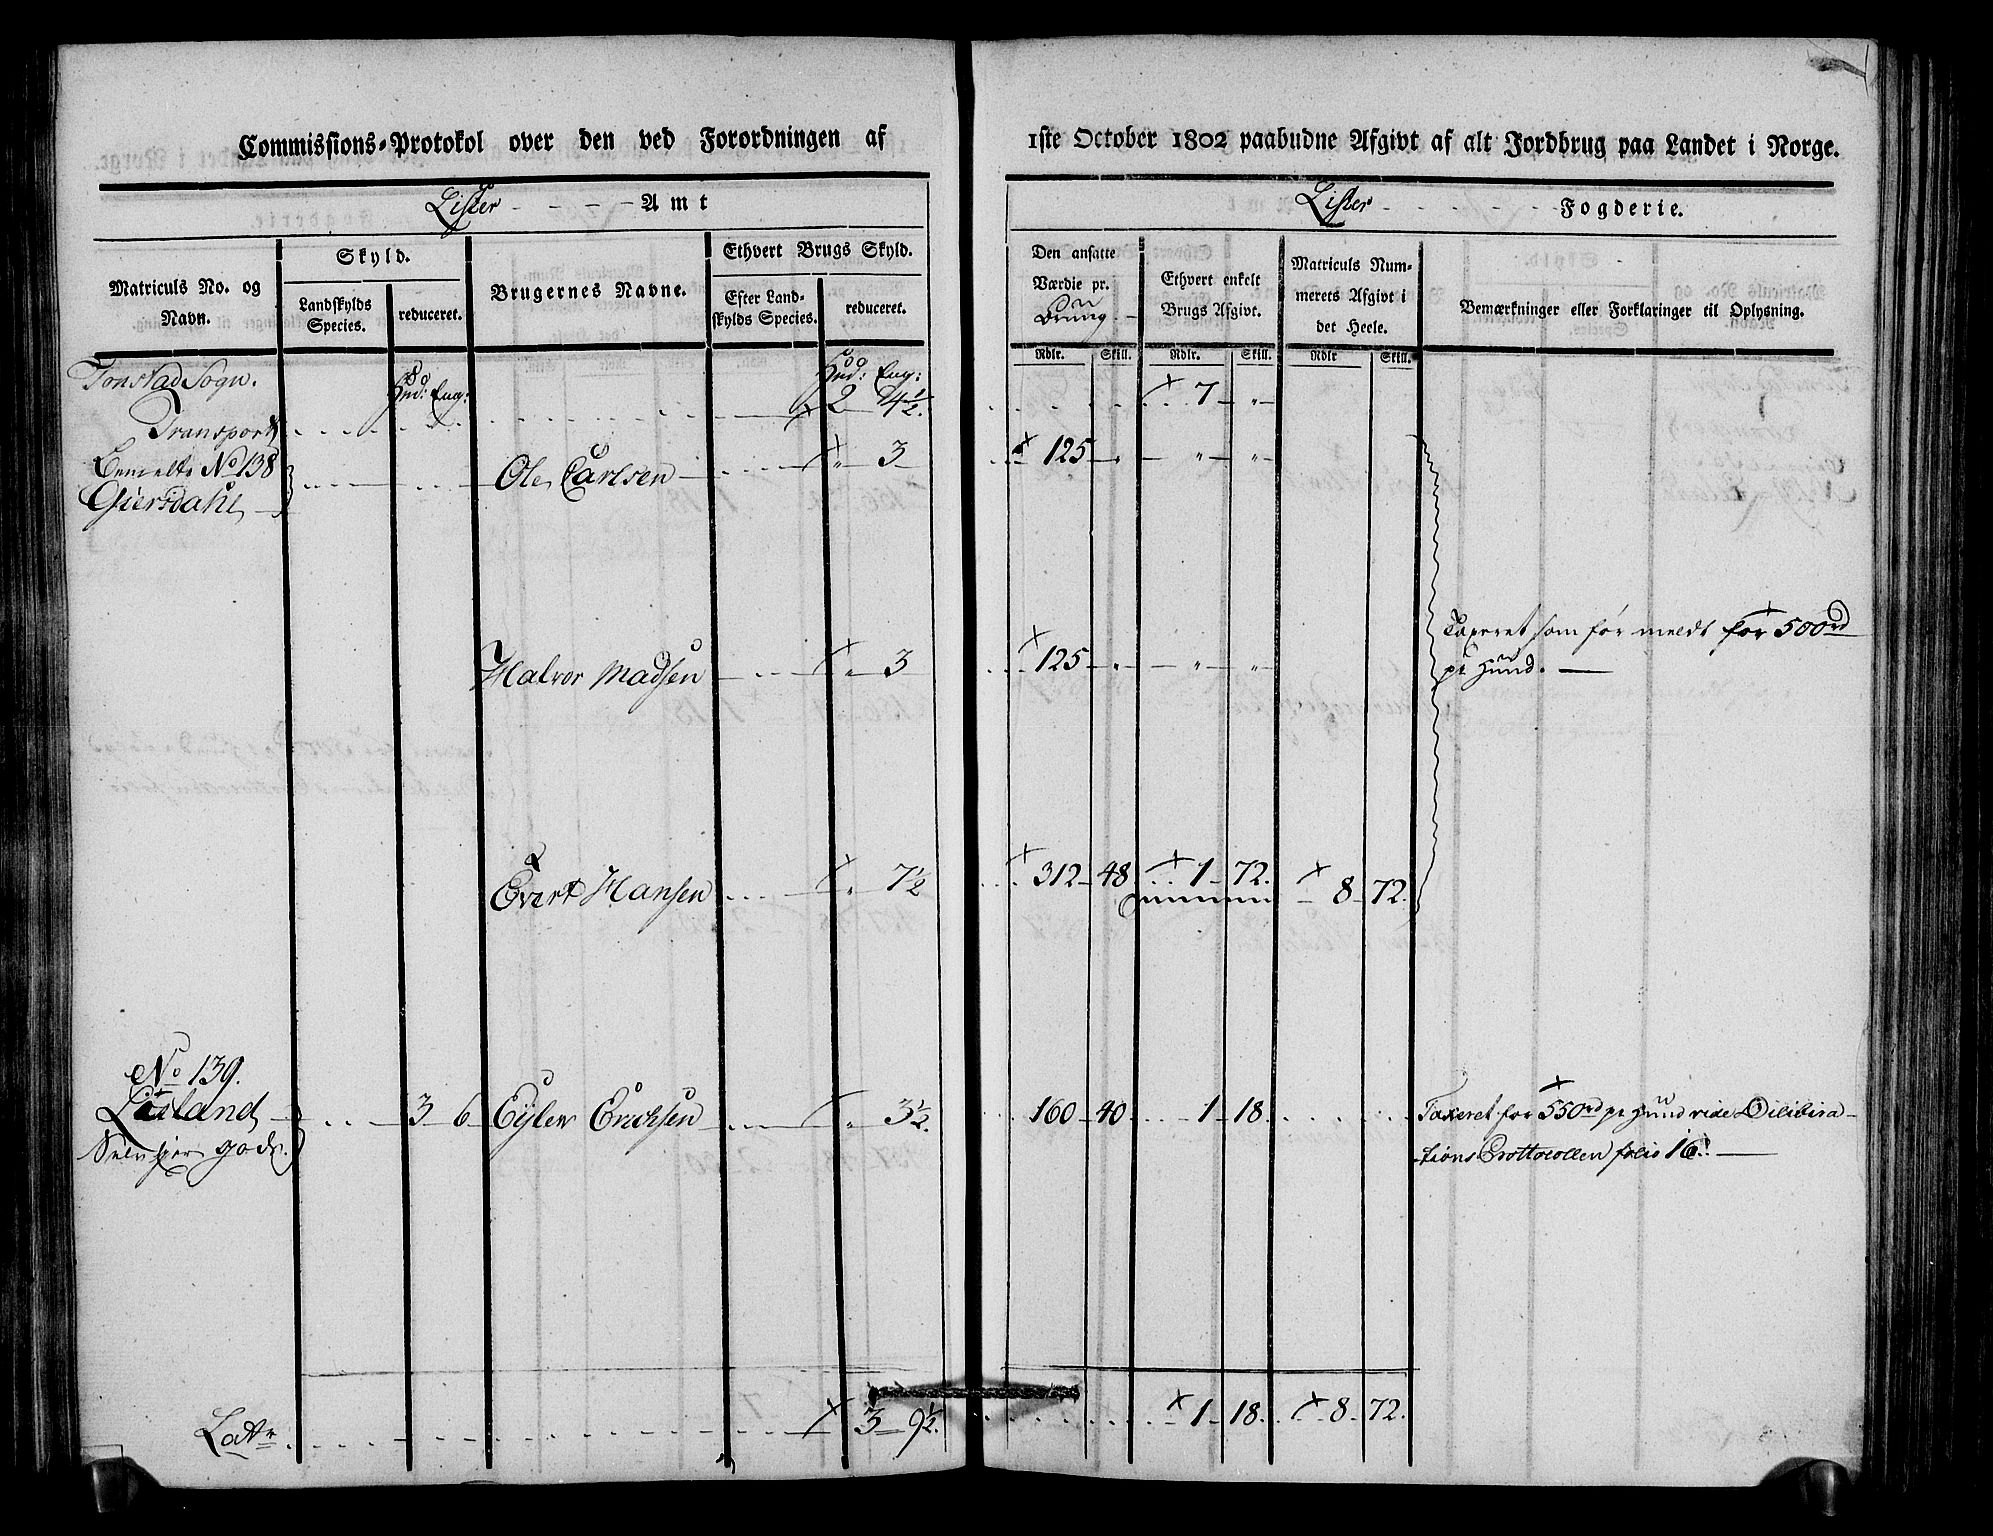 Commissions-Protokol over den ved Forordningen af 1ste October 1802 paabudne Afgivt af alt Jordbrug paa Landet i Norge.
Lister Amt
Lister Fogderie.
Matriculs No. og Navn.
Skyld.
Landskylds Species.
reduceret.
Brugernes Navne.
Ethvert Brugs Skyld.
Efter Landskylds Species.
reduceret.
Den ansatte Værdie pr.
Ethvert enkelt Brugs Afgivt.
Matriculs Nummerets Afgivt i det Heele.
Bemærkninger eller Forklaringer til Oplysning.
Rdlr. Skill. Rdlr. Skill. Rdlr Skill.
Tonstad Sogn. Hud: Eng: Hud: Eng:
Transport 2 4½. 7 "
No 138 Ole Carlsen " 3 125 " " "
Giersdahl
Taxeret som før meldt for 500rd
Halvor Madsen " 3 125 " " "
pr Hund.
Evert Hansen " 7½ 312 48 1 72. 8 72.
No 139.
Lisland 3 6 Eyler Erichsen " 3½. 160 40 1 18. Taxeret for 550rd pr Hund vide Dilibira-
gods. tions Prottocollen folio 16.
Lattr 3 9½. 1 18. 8 72.